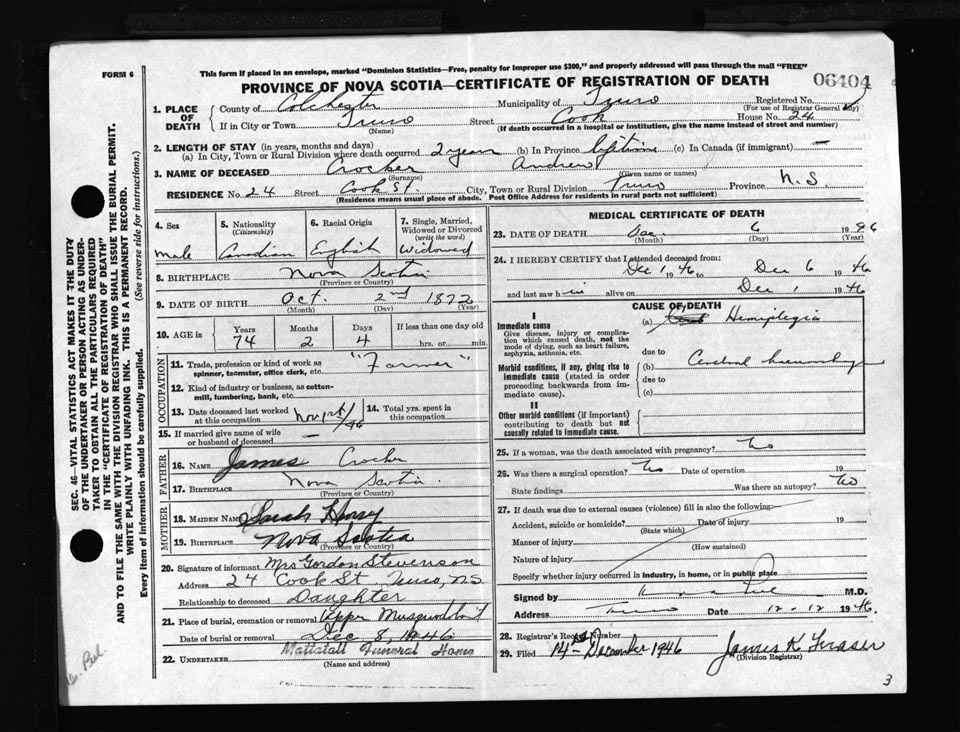 FORM 6
This form if placed in an envelope, marked "Dominion Statistics—Free, penalty for improper use $300," and properly addressed will pass through the mail "FREE"
PROVINCE OF NOVA SCOTIA—CERTIFICATE OF REGISTRATION OF DEATH
06404
SEC. 46—VITAL STATISTICS ACT MAKES IT THE DUTY
OF THE UNDERTAKER OR PERSON ACTING AS UNDER-
TAKER TO OBTAIN ALL THE PARTICULARS REQUIRED
IN THE "CERTIFICATE OF REGISTRATION OF DEATH"
AND TO FILE THE SAME WITH THE DIVISION REGISTRAR WHO SHALL ISSUE THE BURIAL PERMIT.
WRITE PLAINLY WITH UNFADING INK. THIS IS A PERMANENT RECORD.
Every item of information should be carefully supplied. (See reverse side for instructions.)
1. PLACE OF DEATH
County of Colchester Municipality of Truro Registered No.
(For use of Registrar General only)
If in City or Town Truro Street Cook House No. 24
(Name) (If death occurred in a hospital or institution, give the name instead of street and number)
2. LENGTH OF STAY (in years, months and days)
(a) In City, Town or Rural Division where death occurred 2 years (b) In Province lifetime (c) In Canada (if immigrant) —
3. NAME OF DECEASED Crocker Andrew
(Surname) (Given name or names)
RESIDENCE No. 24 Street Cook St. City, Town or Rural Division Truro Province N.S.
(Residence means usual place of abode. Post Office Address for residents in rural parts not sufficient)
4. Sex male
5. Nationality (Citizenship) Canadian
6. Racial Origin English
7. Single, Married, Widowed or Divorced (write the word) Widowed
8. BIRTHPLACE Nova Scotia
(Province or Country)
9. DATE OF BIRTH Oct. 2nd 1872
(Month) (Day) (Year)
10. AGE in Years 74 Months 2 Days 4 If less than one day old
hrs. or min.
OCCUPATION
11. Trade, profession or kind of work as "Farmer"
spinner, teamster, office clerk, etc.
12. Kind of industry or business, as cotton-
mill, lumbering, bank, etc.
13. Date deceased last worked at this occupation
14. Total yrs. spent in this occupation
15. If married give name of wife or husband of deceased —
FATHER
16. NAME James Crocker
17. BIRTHPLACE Nova Scotia
(Province or Country)
MOTHER
18. MAIDEN NAME Sarah Henry
19. BIRTHPLACE Nova Scotia
(Province or Country)
20. Signature of informant Mrs Gordon Stevenson
Address 24 Cook St, Truro, N.S.
Relationship to deceased Daughter
21. Place of burial, cremation or removal Upper Musquodoboit
Date of burial or removal Dec 8, 1946
22. UNDERTAKER Mattatall Funeral Home
(Name and address)
MEDICAL CERTIFICATE OF DEATH
23. DATE OF DEATH Dec. 6 1946
(Month) (Day) (Year)
24. I HEREBY CERTIFY that I attended deceased from:
Dec 1, 46 to Dec 6 1946
and last saw him alive on Dec 1 1946
CAUSE OF DEATH
I
Immediate cause
Give disease, injury or complica-
tion which caused death, not the
mode of dying, such as heart failure,
asphyxia, asthenia, etc.
(a) Hemiplegia
due to
Morbid conditions, if any, giving rise to
immediate cause (stated in order
proceeding backwards from im-
mediate cause).
(b) Cerebral haemorrhage
due to
(c)
II
Other morbid conditions (if important)
contributing to death but not
causally related to immediate cause.
25. If a woman, was the death associated with pregnancy? No
26. Was there a surgical operation? No Date of operation 19
State findings Was there an autopsy? No
27. If death was due to external causes (violence) fill in also the following:—
Accident, suicide or homicide? Date of injury 19
(State which)
Manner of injury
(How sustained)
Nature of injury
Specify whether injury occurred in industry, in home, or in public place
Signed by M.D.
Address Truro Date 12-12 1946.
28. Registrar's Record Number
29. Filed 14th December 1946 James K Fraser
(Division Registrar)
3